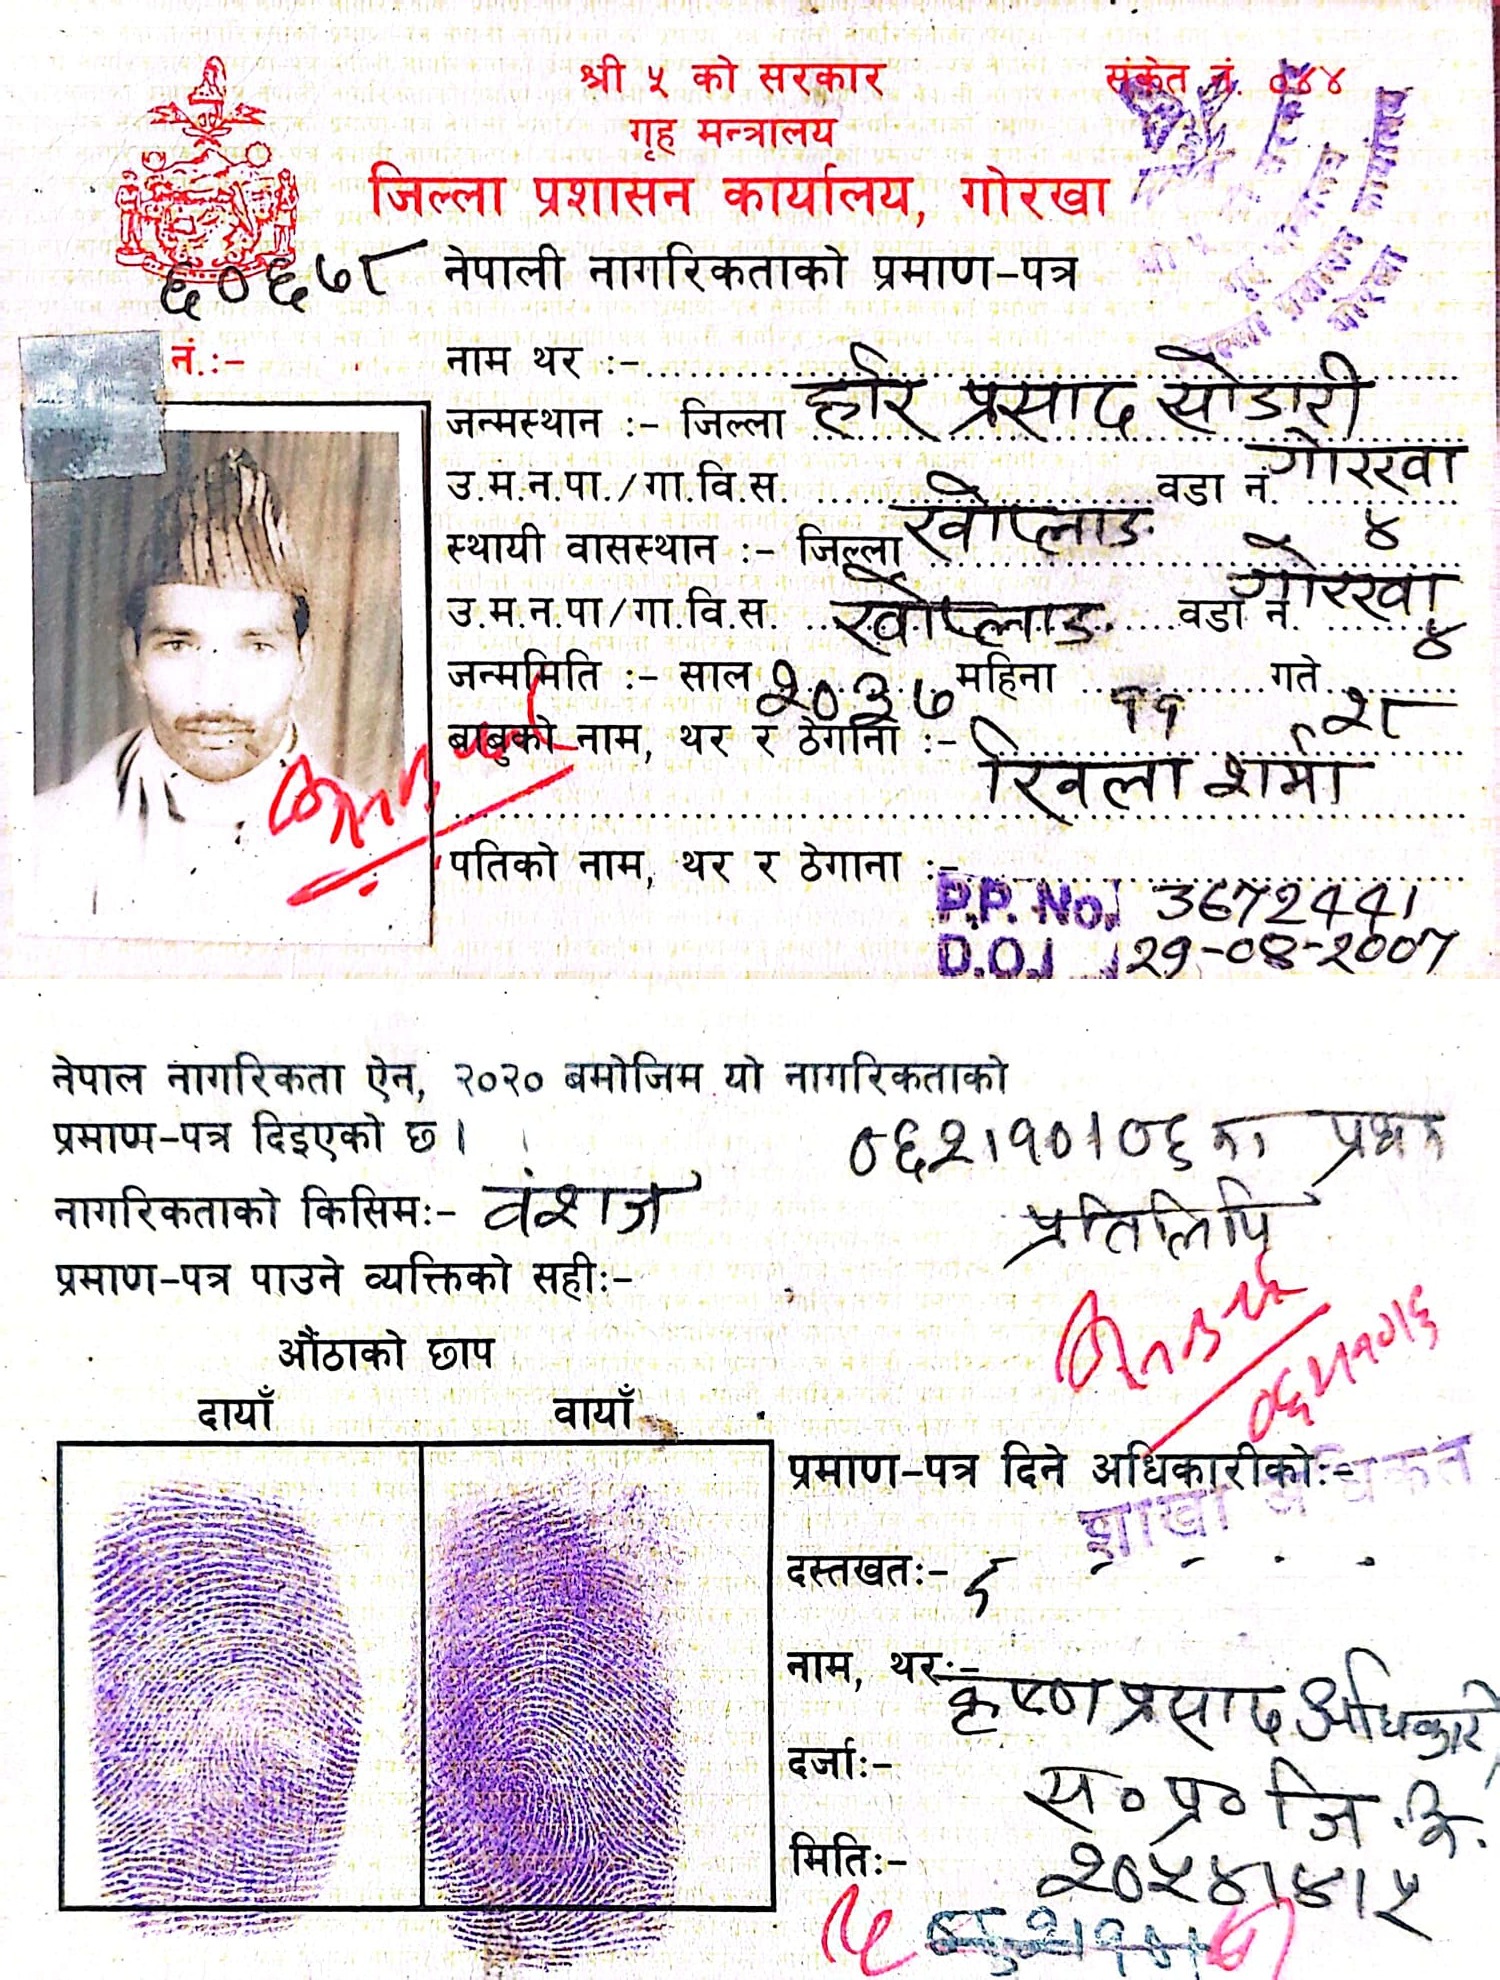 श्री ५ को सरकार
संकेत नं. ०४४
गृह मन्त्रालय
जिल्ला प्रशासन कार्यालय, गोरखा
६०६७८ नेपाली नागरिकताको प्रमाण-पत्र
नं.:-
नाम थर :- प्रसाद
जन्मस्थान :- जिल्ला गोरखा
उ.म.न.पा./गा.वि.स. खोप्लाङ वडा नं. ४
स्थायी वासस्थान :- जिल्ला गोरखा
उ.म.न.पा/गा.वि.स. खोप्लाङ वडा नं. ४
जन्ममिति :- साल २०३७ महिना ११ गते २८
बाबुको नाम, थर र ठेगाना :- शर्मा
पतिको नाम, थर र ठेगाना :-
P.P. No. 3672441
D.O.I 29-08-2007
नेपाल नागरिकता ऐन, २०२० बमोजिम यो नागरिकताको
प्रमाण-पत्र दिइएको छ।
०६२।१०।०६ का
नागरिकताको किसिमः- वंशज
प्रतिलिपि
प्रमाण-पत्र पाउने व्यक्तिको सहीः-
औंठाको छाप
दायाँ वायाँ
प्रमाण-पत्र दिने अधिकारीकोः-
शाखा अधिकृत
दस्तखतः-
नाम, थरः- कृष्ण प्रसाद अधिकारी
दर्जाः- स०प्र०जि.अ.
मितिः- २०५४।४।५